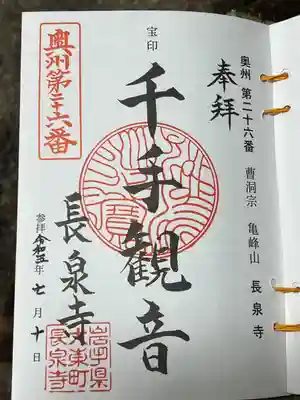 奥州 第二十六番 曹洞宗 亀峰山 長泉寺
奉拝
宝印
千手観音
長泉寺
奥州第二十六番
参拝 令和五年 七月 十日
岩手県
東町
長泉寺